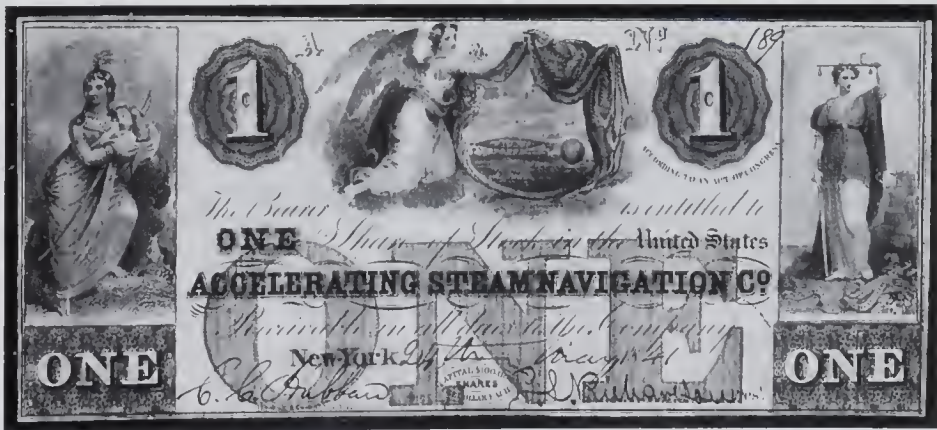 1 A No. 189 1
C C
ACCORDING TO AN ACT OF CONGRESS
The Bearer is entitled to
ONE Share of Stock in the United States
ACCELERATING STEAM NAVIGATION Co
Receivable in all dues to the Company
ONE
New York 24th May 1841
CAPITAL
SHARES
ONE ONE